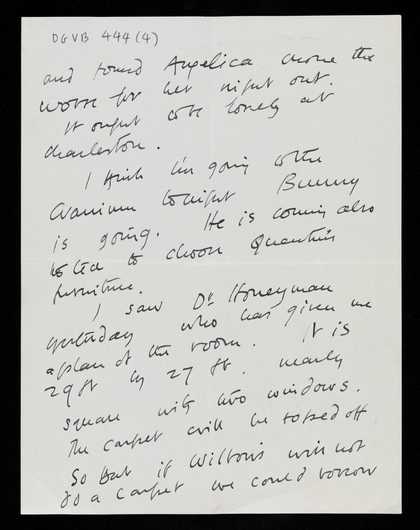 DGVB 444 (4)
and found Angelica none the
worse for her night out.
It ought to be lovely at
Charleston.
I think I'm going to the
Cranium tonight Bunny
is going. He is coming also
to tea to choose Quentin's
furniture.
I saw Dr Honeyman
yesterday who has given me
a plan of the room. It is
29 ft by 27 ft. nearly
square with two windows.
The carpet will be
So that if Wilton's will not
do a carpet we could borrow